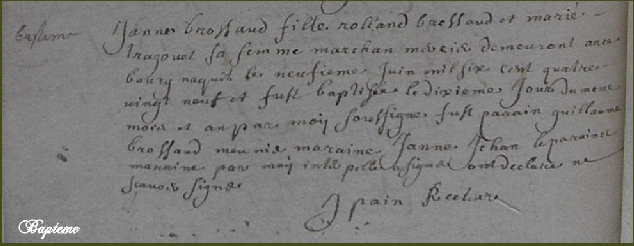 bapteme
Janne brossaud fille rolland brossaud et marie
tragouet sa femme marchan demeuront ance
bourg naquit le neufieme Juin mil six cent quatre
vingt neuf et fust baptisée le dixieme Jour du mesme
mois et an par moy soussigne fust parain guillaume
brossaud meunié maraine Janne Jehan le parain et
maraine par moy interpelle a signe ont declare ne
scavoir signe
J pain Recteur
Bapteme